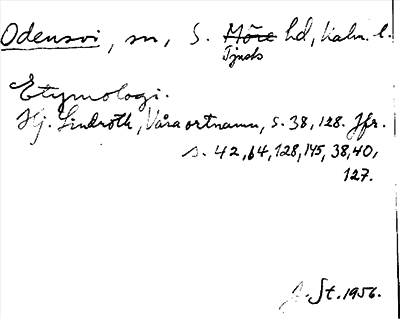 Odensvi, sn, S. Möre hd, Kalm. l.
Tjusts
Etymologi.
Hj. Lindroth, Våra ortnamn, s. 38, 128. Jfr.
s. 42, 64, 128, 145, 38, 40,
127.
J. St. 1956.